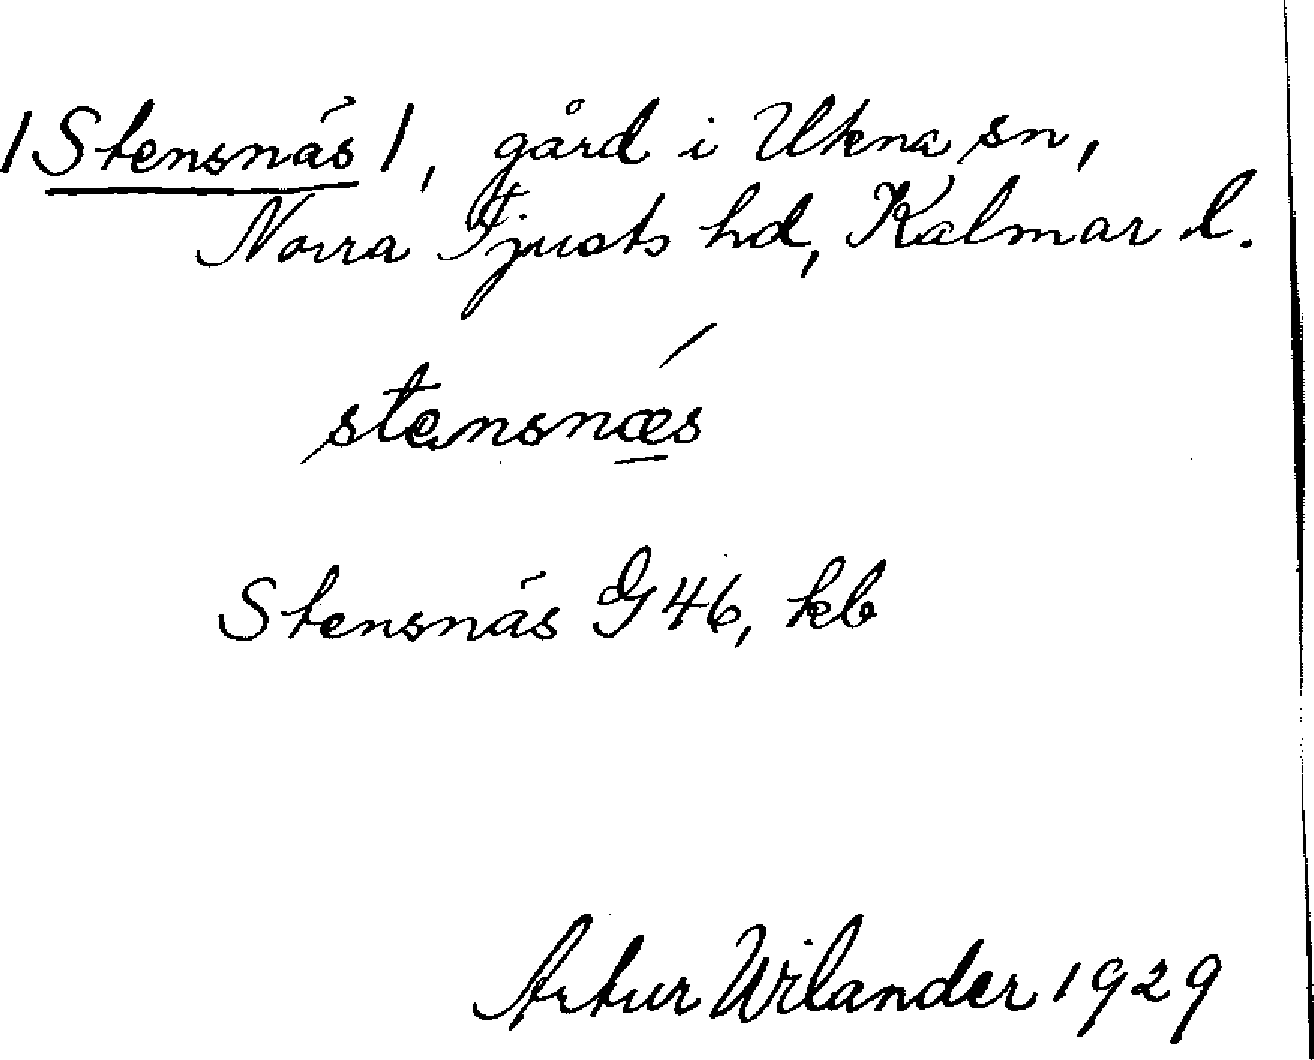 /Stensnäs/, gård i Ukna sn,
Norra Tjusts hd, Kalmar l.
stensnæs
Stensnäs G 46, kb
Artur Wilander 1929